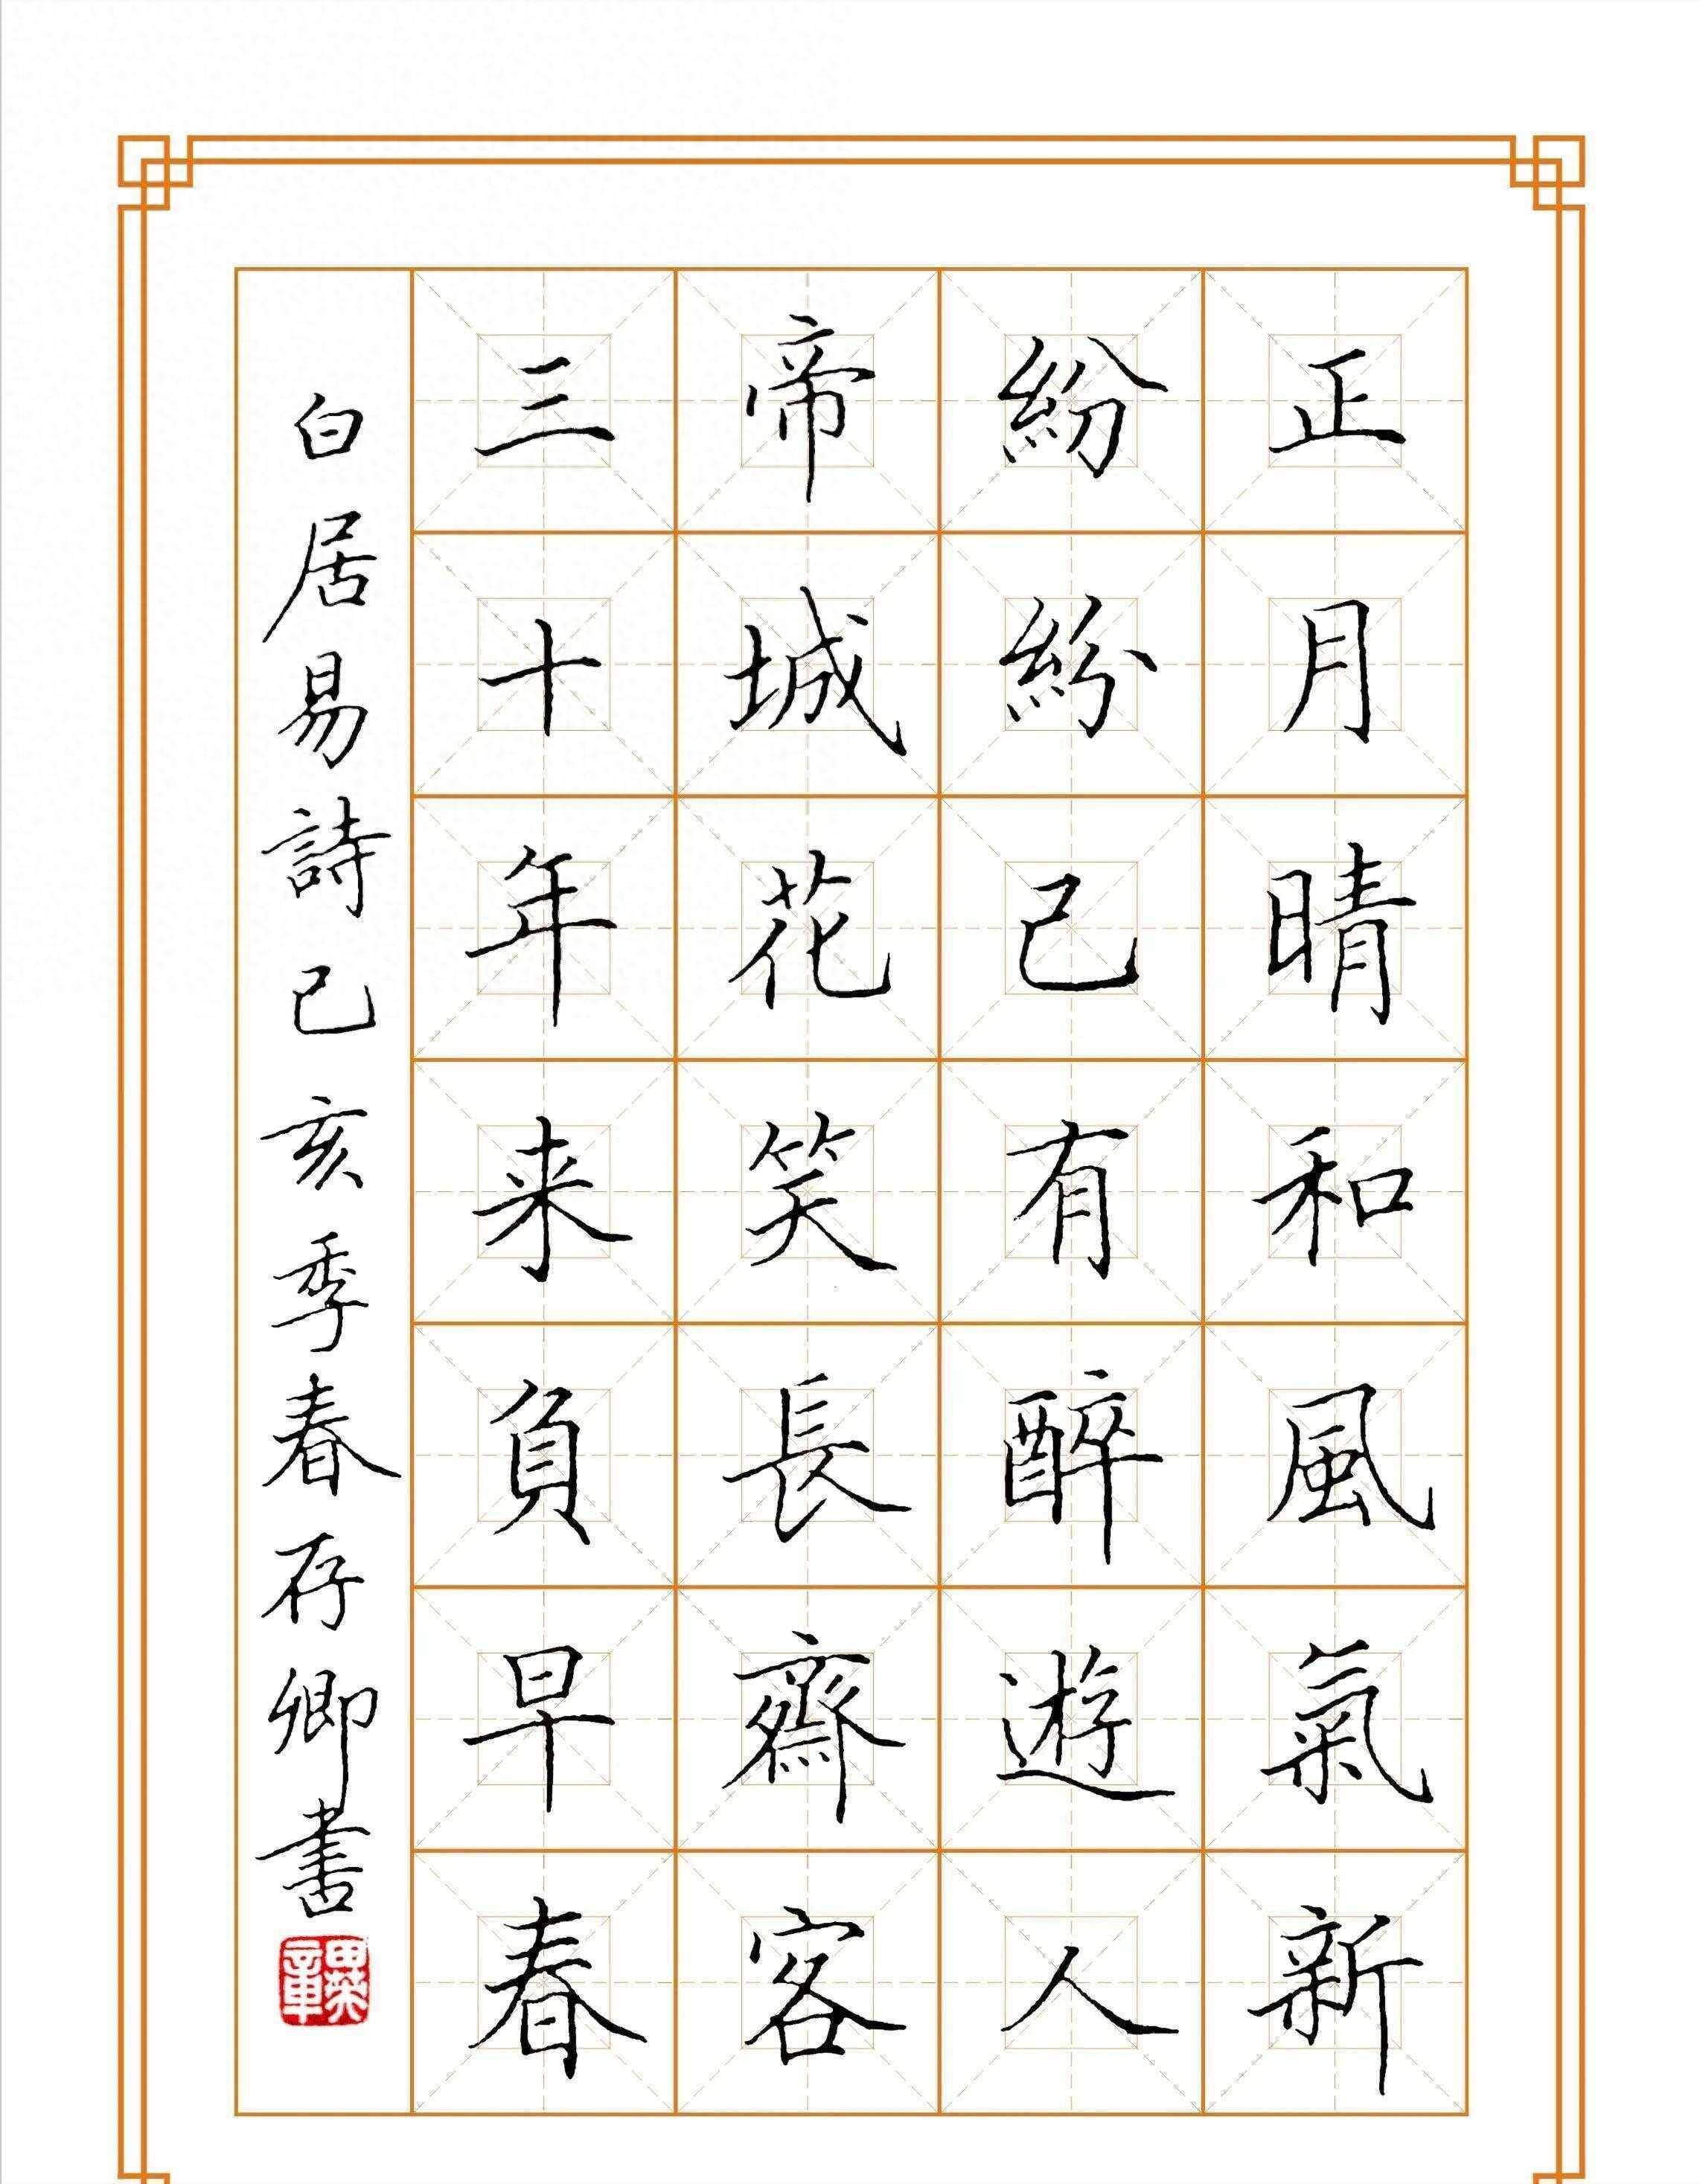 正月晴和風氣新
紛紛已有醉遊人
帝城花笑長齋客
三十年来負早春
白居易詩己亥季春存卿書
田英章